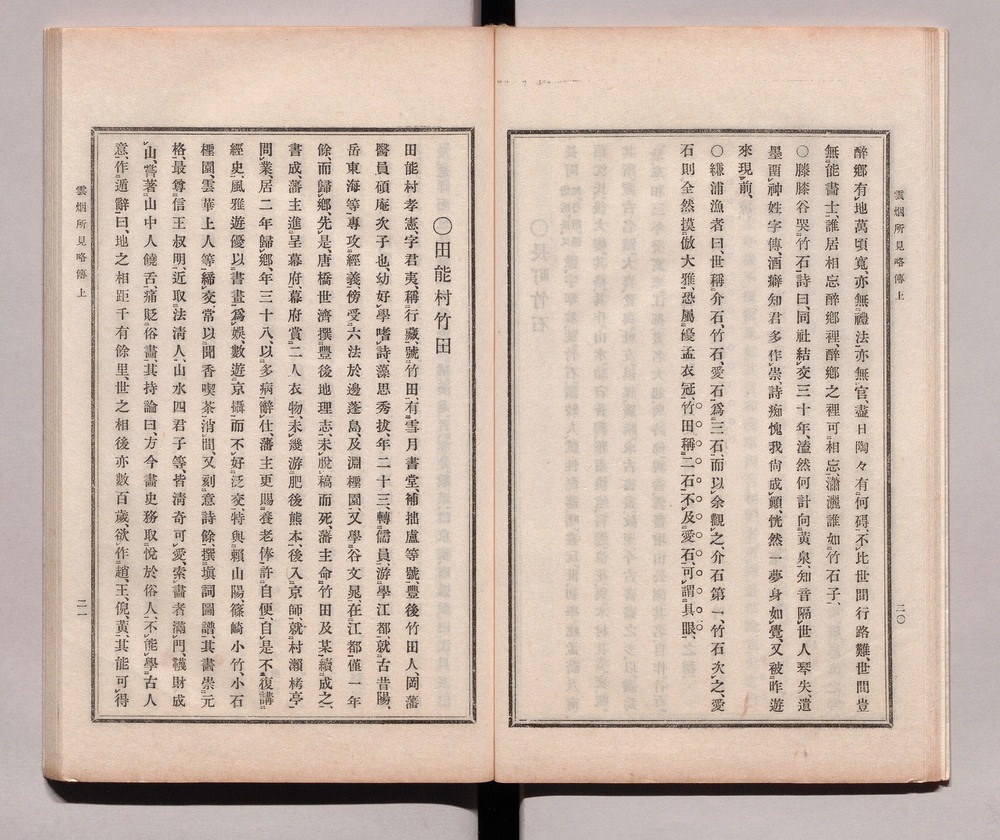 雲烟所見略傳 上
二〇
醉鄉有地萬頃寬、亦無禮法、亦無官、盡日陶々有何碍、不比世間行路難、世間豈
無能書士、誰居相忘醉鄉裡、醉鄉之裡可相忘、瀟灑誰如竹石子、
〇滕滕谷哭竹石詩曰、同社結交三十年、溘然何計向黃泉、知音隔世人琴失、遺
墨酉神姓字傳、酒癖知君多作祟、詩痴愧我尙成顚、恍然一夢身如覺、又被昨遊
來現前、
〇縑浦漁者曰、世稱介石、竹石、愛石爲三石、而以余觀之、介石第一、竹石次之、愛
石則全然摸倣大雅、恐屬優孟衣冠、竹田稱二石不及愛石、可謂具眼、
〇田能村竹田
田能村孝憲、字君夷、稱行藏、號竹田、有雪月書堂、補拙盧等號、豐後竹田人、岡藩
醫員碩庵次子也、幼好學嗜詩、藻思秀拔、年二十三、轉儒員、游學江都、就古昔陽、
岳東海等、專攻經義、傍受六法於邊蓬島、及淵樗園、又學谷文晁、在江都僅一年
餘、而歸鄉、先是唐橋世濟撰豐後地理志、未脫稿而死、藩主命竹田及某續成之、
書成、藩主進呈幕府、幕府賞二人衣物、未幾游肥後熊本、後入京師、就村瀨栲亭
問業、居二年歸鄉、年三十八、以多病辭仕、藩主更賜養老俸、許自便、自是不復講
經史、風雅遊優、以書畫爲娛、數遊京攝、而不好泛交、特與賴山陽篠崎小竹、小石
檉園、雲華上人等締交、常以聞香喫茶消間、又刻意詩餘、撰塡詞圖譜、其書崇元
格、最尊信王叔明、近取法淸人、山水四君子等、皆淸奇可愛、索書者滿門、韈財成
山、嘗著山中人饒舌、痛貶俗畫、其持論曰、方今畫史務取悅於俗人、不能學古人
意、作遁辭曰、地之相距千有餘里、世之相後亦數百歲、欲作趙、王、倪、黃、其能可得
雲烟所見略傳 上
二一